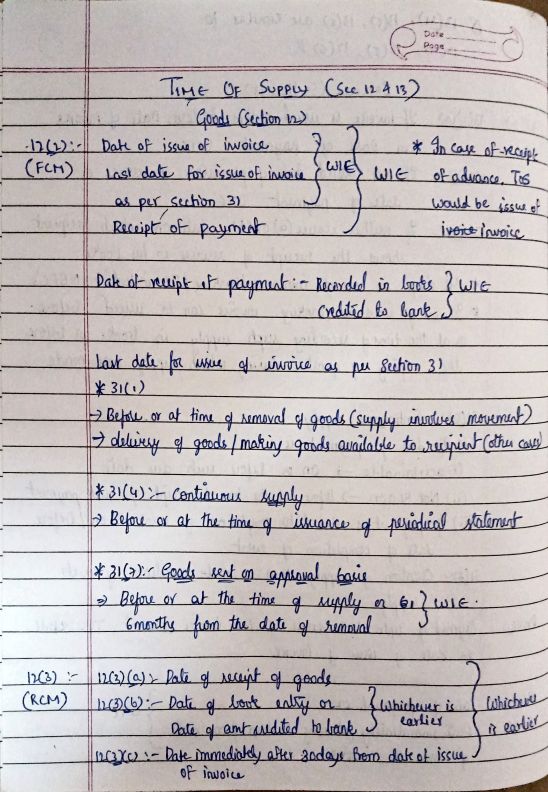 Date
Page
TIME OF SUPPLY (Sec 12 & 13)
Goods (Section 12)
12(2):- Date of issue of invoice } WIE } WIE * In case of receipt
(FCM) Last date for issue of invoice of advance, TOS
as per section 31 would be issue of
Receipt of payment ivoice invoice
Date of receipt of payment:- Recorded in books } WIE
Credited to bank
Last date for issue of invoice as per Section 31
* 31(1)
→ Before or at time of removal of goods (supply involves movement)
→ delivery of goods / making goods available to recipient (other cases)
* 31(4):- Continuous supply
→ Before or at the time of issuance of periodical statement
* 31(7):- Goods sent on approval basis
⇒ Before or at the time of supply or } WIE.
6months from the date of removal
12(3) :- 12(3)(a):- Date of receipt of goods
(RCM) 12(3)(b):- Date of book entry or } Whichever is earlier } Whichever is earlier
Date of amt credited to bank
12(3)(c):- Date immediately after 30days from date of issue
of invoice